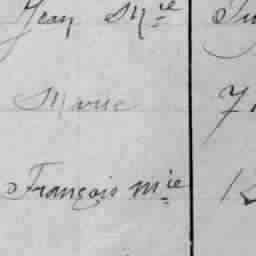 Jean Mie
Marie 7
François mie 12